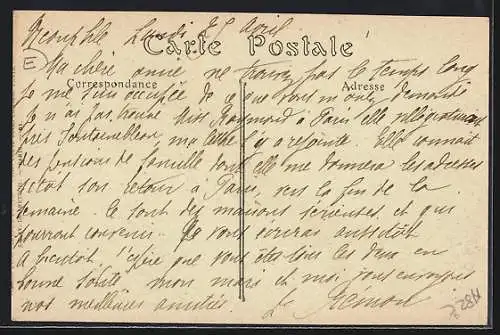 Neauphle Lundi 25 Avril
Carte Postale
E
Ma chère amie ne trouvez pas le temps long
Correspondance
Adresse
je me suis occupée de ce que vous m'avez demandé
je n'ai pas trouvé Miss Raymond à Paris elle villégiature
près Fontainebleau ma l'y a rejointe. Elle connait
des pensions de famille dont elle me donnera les adresses
sitôt son retour à Paris, vers la fin de la
semaine. Ce sont des maisons sérieuses et qui
pourront convenir. Je vous écrirai aussitôt
A bientôt j'espère que vous êtes tous les deux en
bonne santé mon mari et moi vous envoyons
nos meilleures amitiés.